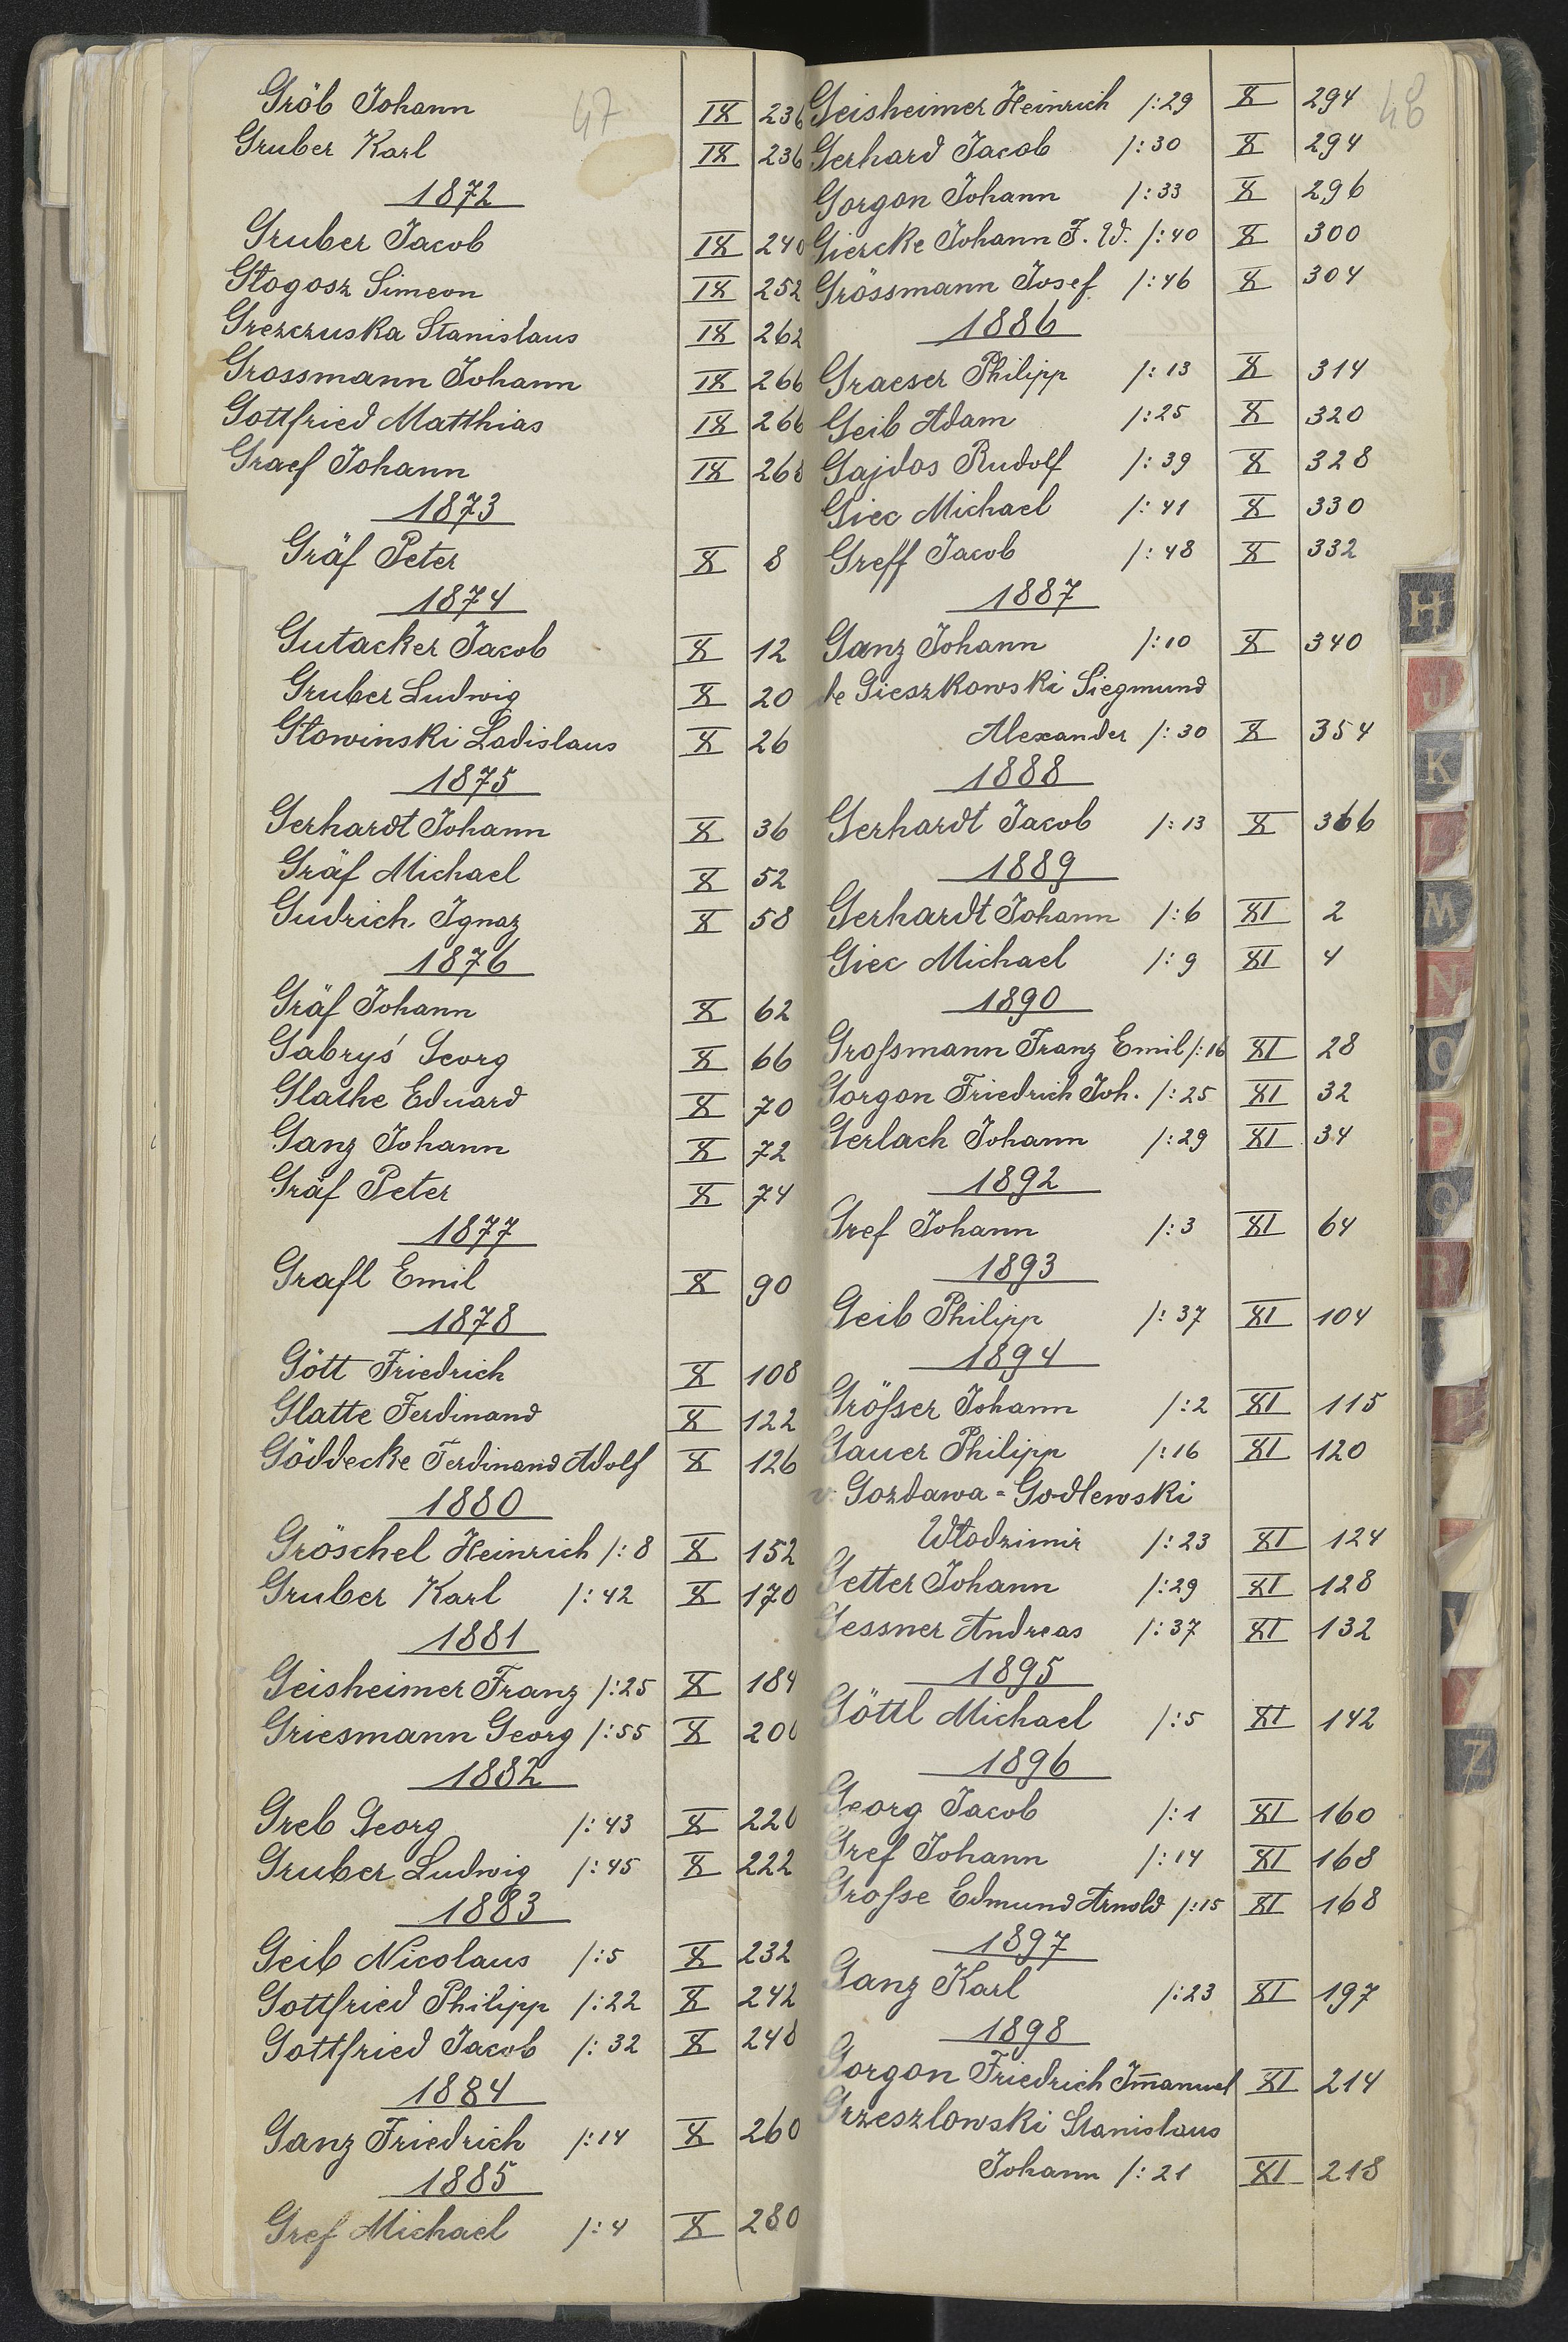 47
Gröb Johann IX 236
Gruber Karl IX 236
1872
Gruber Jacob IX 240
Głogosz Simeon IX 252
Grezczuska Stanislaus IX 262
Grossmann Johann IX 266
Gottfried Matthias IX 266
Graef Johann IX 268
1873
Gräf Peter X 8
1874
Gutacker Jacob X 12
Gruber Ludwig X 20
Głowinski Ladislaus X 26
1875
Gerhardt Johann X 36
Gräf Michael X 52
Gudrich Ignaz X 58
1876
Gräf Johann X 62
Gabryś Georg X 66
Glathe Eduard X 70
Ganz Johann X 72
Gräf Peter X 74
1877
Grafl Emil X 90
1878
Gött Friedrich X 108
Glatte Ferdinand X 122
Göddecke Ferdinand Adolf X 126
1880
Gröschel Heinrich /: 8 X 152
Gruber Karl /: 42 X 170
1881
Geisheimer Franz /: 25 X 184
Griesmann Georg /: 55 X 200
1882
Greb Georg /: 43 X 220
Gruber Ludwig /: 45 X 222
1883
Geib Nicolaus /: 5 X 232
Gottfried Philipp /: 22 X 242
Gottfried Jacob /: 32 X 248
1884
Ganz Friedrich /: 14 X 260
1885
Gref Michael /: 4 X 280
48
Geisheimer Heinrich /: 29 X 294
Gerhard Jacob /: 30 X 294
Gorgon Johann /: 33 X 296
Giercke Johann F. W. /: 40 X 300
Grössmann Josef /: 46 X 304
1886
Graeser Philipp /: 13 X 314
Geib Adam /: 25 X 320
Gajdos Rudolf /: 39 X 328
Giec Michael /: 41 X 330
Greff Jacob /: 48 X 332
1887
Ganz Johann /: 10 X 340
de Gieszkowski Siegmund
Alexander /: 30 X 354
1888
Gerhardt Jacob /: 13 X 366
1889
Gerhardt Johann /: 6 XI 2
Giec Michael /: 9 XI 4
1890
Großmann Franz Emil /: 16 XI 28
Gorgon Friedrich Joh. /: 25 XI 32
Gerlach Johann /: 29 XI 34
1892
Gref Johann /: 3 XI 64
1893
Geib Philipp /: 37 XI 104
1894
Größer Johann /: 2 XI 115
Gauer Philipp /: 16 XI 120
v. Gozdawa-Godlewski
Włodzimir /: 23 XI 124
Getter Johann /: 29 XI 128
Gessner Andreas /: 37 XI 132
1895
Göttl Michael /: 5 XI 142
1896
Georg Jacob /: 1 XI 160
Gref Johann /: 14 XI 168
Große Edmund Arnold /: 15 XI 168
1897
Ganz Karl /: 23 XI 197
1898
Gorgon Friedrich Im̄anuel XI 214
Grzeszlowski Stanislaus
Johann /: 21 XI 218
H
J
K
L
M
N
O
P
Q
R
V
Z